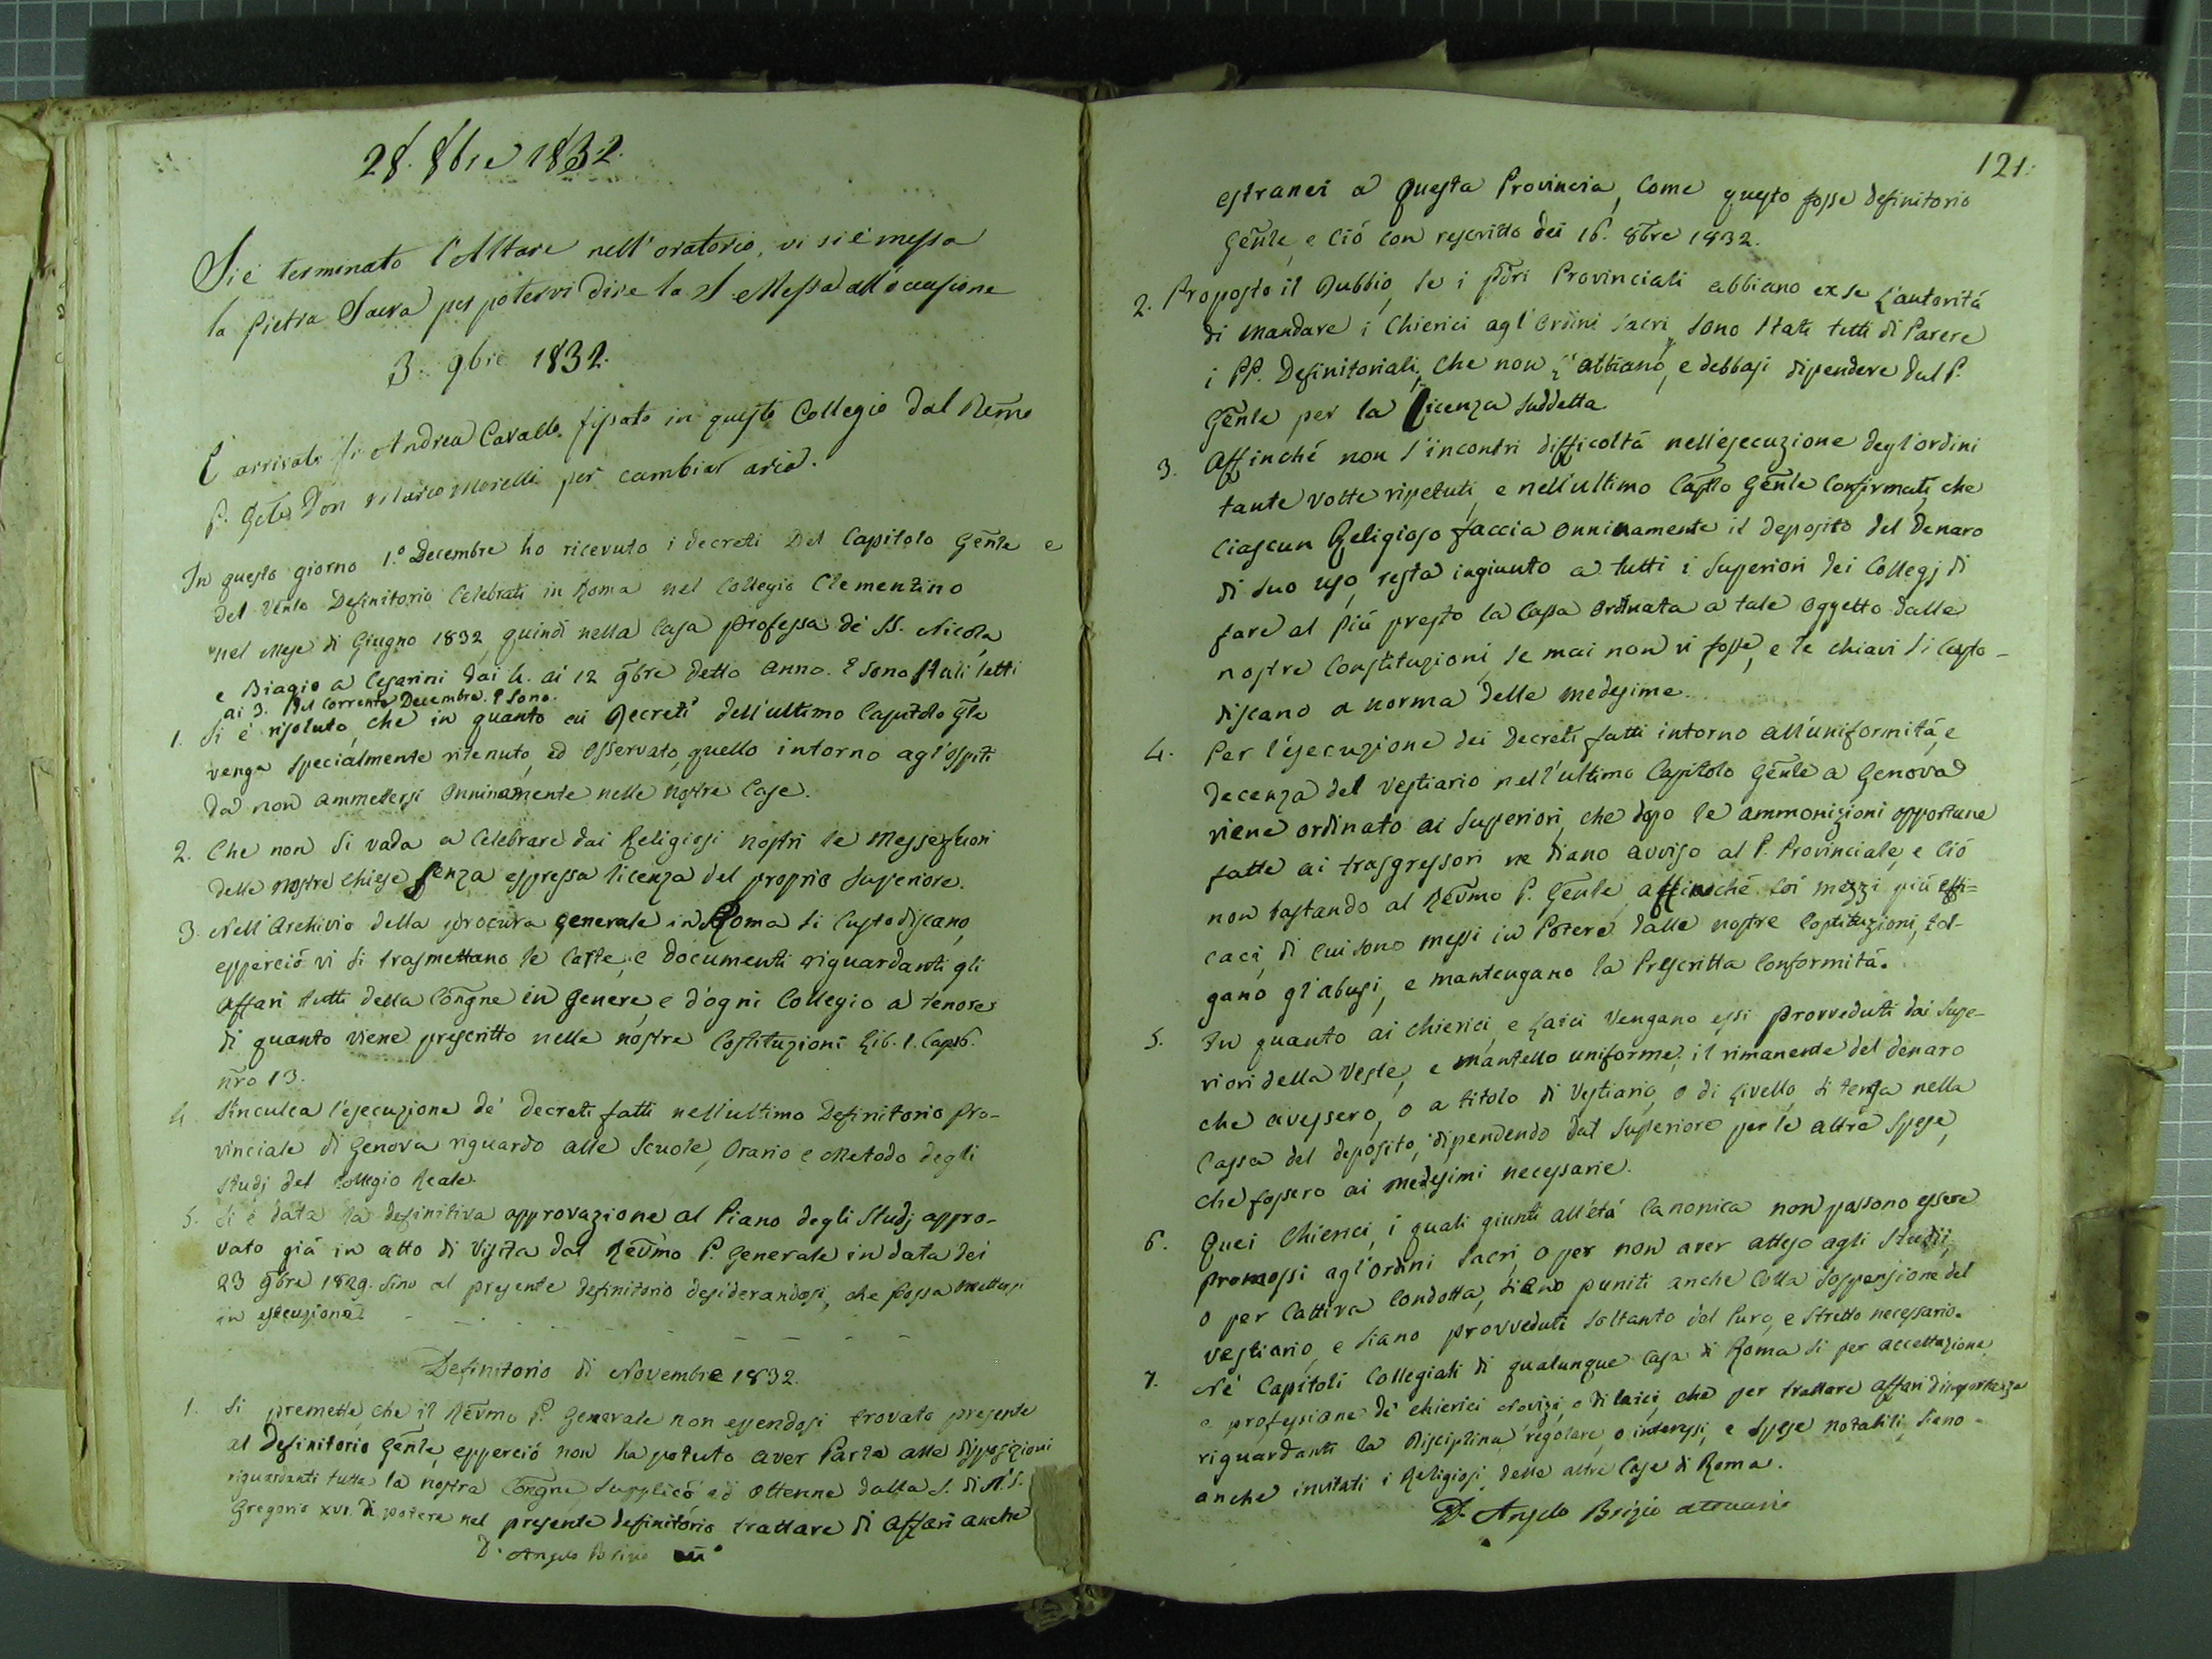 28. 8bre 1832.
Si è terminato l'Altare nell'oratorio, vi si è messa
la Pietra Sacra per potervi dire la S. Messa all'occasione
3. 9bre 1832.
È arrivato Andrea Cavallo fissato in questo Collegio dal Rem̄o
P. Gēle Don Marco Morelli per cambiar aria.
In questo giorno 1.º Decembre ho ricevuto i decreti Del Capitolo Gēnle e
del Definitorio Celebrati in Roma nel Collegio Clementino
nel Mese di Giugno 1832, quindi nella Casa professa de' SS. Nicola,
e Biagio a Cesarini dai 4. ai 12 9bre detto anno. E sono stati letti
ai 3. del corrente Decembre. E sono.
1. Si è risoluto, che in quanto ai Decreti dell'ultimo Capitolo Gle
venga specialmente ritenuto, ed osservato, quello intorno agl'ospiti
da non ammettersi onninamente nelle nostre Case.
2. Che non si vada a Celebrare dai Religiosi nostri le Messe fuori
delle nostre chiese senza espressa licenza del proprio Superiore.
3. Nell'Archivio della procura generale in Roma si custodiscano,
epperciò vi si trasmettano le Carte, e Documenti riguardanti gli
affari tutti della Congne in genere, e d'ogni Collegio a tenore
di quanto viene prescritto nelle nostre Costituzioni Lib. 1. Cap. 16.
nr̄o 13.
4. S'inculca l'esecuzione de' decreti fatti nell'ultimo Definitorio Pro-
vinciale di Genova riguardo alle Scuole, Orario e Metodo degli
studj del Collegio Reale.
5. Si è data la definitiva approvazione al Piano degli Studj appro-
vato già in atto di Visita dal Revm̄o P. Generale in data dei
23 9bre 1829. sino al presente definitorio desiderandosi, che possa mettersi
in esecuzione.
Definitorio di Novembre 1832.
1. Si premette, che il Revm̄o P. Generale non essendosi trovato presente
al Definitorio Gēnle, epperciò non ha potuto aver Parte alle disposizioni
riguardanti tutta la nostra Congne supplicò ed ottenne dalla S. di N. S.
Gregorio XVI. di potere nel presente definitorio trattare di affari anche
D. Angelo Brizio
121.
estranei a questa Provincia, come questo fosse definitorio
Gēnle, e ciò con rescritto dei 16. 8bre 1832.
2. Proposto il Dubbio, se i Pdri Provinciali abbiano ex se l'autorità
di mandare i Chierici agl'Ordini sacri, sono stati tutti di Parere
i PP. Definitoriali, che non l'abbiano, e debbasi dipendere dal P.
Gēnle per la licenza suddetta.
3. Affinché non s'incontri difficoltà nell'esecuzione degl'ordini
tante volte ripetuti, e nell'ultimo Capto Gēnle Confirmati, che
ciascun Religioso faccia onninamente il deposito del Denaro
di suo uso, resta ingiunto a tutti i Superiori dei Collegj di
fare al più presto la Cassa ordinata a tale oggetto dalle
nostre Constituzioni, se mai non vi fosse, e le chiavi si custo-
discano a norma delle medesime.
4. Per l'esecuzione dei Decreti fatti intorno all'uniformità, e
decenza del vestiario nell'ultimo Capitolo Gēnle a Genova
viene ordinato ai Superiori, che dopo le ammonizioni opportune
fatte ai trasgressori ne diano avviso al P. Provinciale, e ciò
non bastando al Revm̄o P. Gēnle, affinché coi mezzi più effi=
caci, di cui sono messi in Potere dalle nostre Costituzioni, tol-
gano gl'abusi, e mantengano la Prescritta Conformità.
5. In quanto ai chierici e Laici vengano essi provveduti dai Supe-
riori della Veste, e mantello uniforme, il rimanente del denaro
che avessero, o a titolo di Vestiario, o di Livello si tenga nella
Cassa del deposito, dipendendo dal Superiore per le altre spese,
che fossero ai medesimi necessarie.
6. Quei Chierici, i quali giunti all'età Canonica non possono essere
promossi agl'Ordini sacri, o per non aver atteso agli Studii,
o per Cattiva Condotta, siano puniti anche colla sospensione del
vestiario, e siano provveduti soltanto del Puro, e stretto necessario.
7. Ne' Capitoli Collegiali di qualunque Casa di Roma si per accettazione
e professione de' chierici Novizi, o di laici, che per trattare affari d'importanza
riguardanti la Disciplina regolare, o interessi, e spese notabili, sieno
anche invitati i Religiosi delle altre Case di Roma.
D. Angelo Brizio attuario